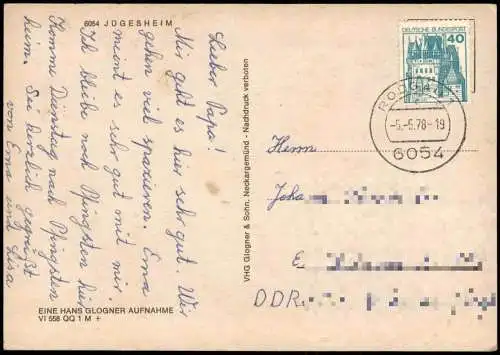 6054 JÜGESHEIM
Lieber Papa!
Mir geht es hier sehr gut. Wir
gehen viel spazieren. Erna
meint es sehr gut mit mir.
Ich bleibe noch Pfingsten hier
Komme Dienstag nach Pfingsten
heim. Sei herzlich gegrüßt
von Erna und Lisa
EINE HANS GLOGNER AUFNAHME
VI 558 QQ 1 M +
VHG Glogner & Sohn, Neckargemünd - Nachdruck verboten
DEUTSCHE BUNDESPOST
40
RODGAU
-5.-5.78-19
6054
Herrn
DDR